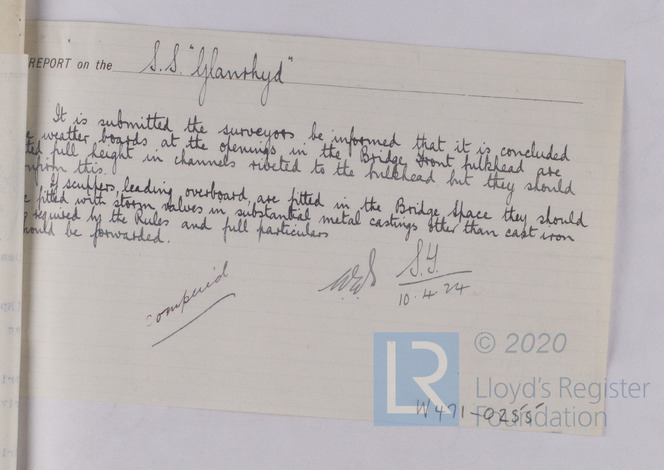 REPORT on the S.S. "Glanrhyd"
It is submitted the surveyors be informed that it is concluded
weather boards at the openings in the Bridge front bulkhead are
ted full height in channels riveted to the bulkhead but they should
nfirm this.
If scuppers, leading overboard, are fitted in the Bridge Space they should
e fitted with storm valves in substantial metal castings other than cast iron
required by the Rules and full particulars
ould be forwarded.
S.Y.
10.4.24
© 2020
LR
Lloyd's Register
Foundation
W471-0255